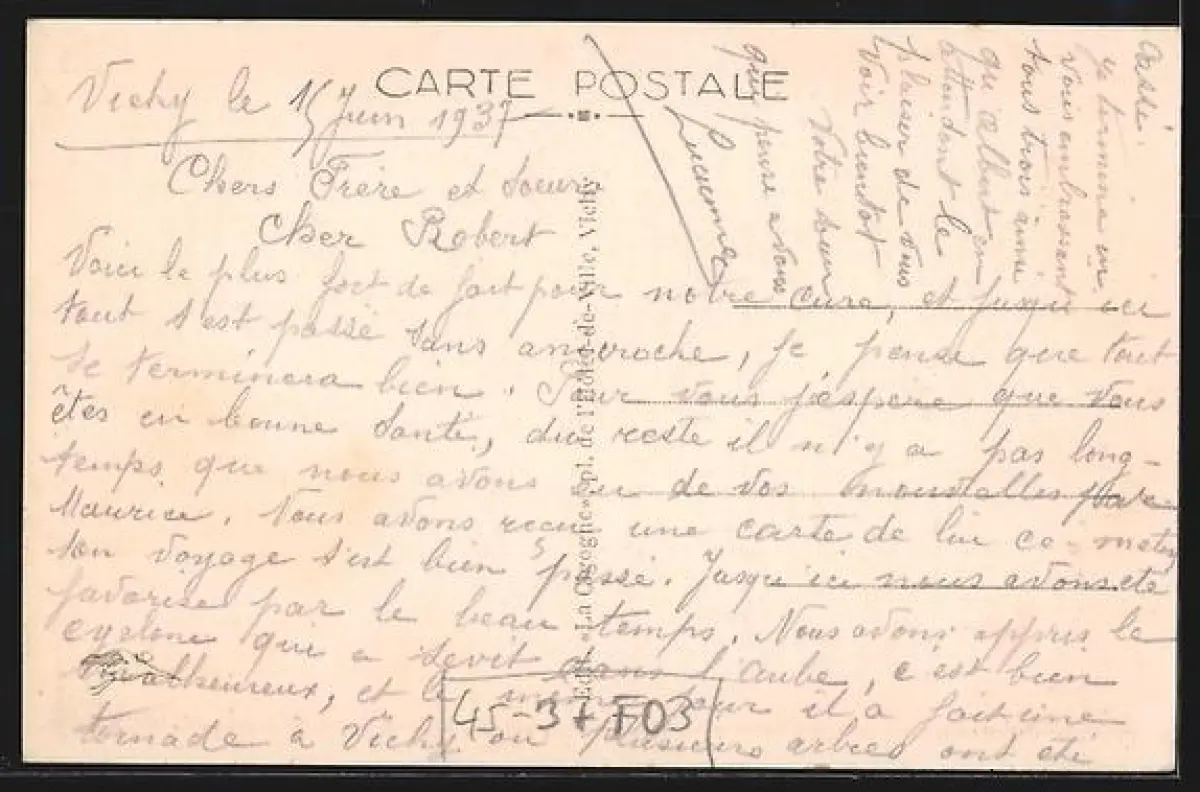 CARTE POSTALE
Vichy le 15 Juin 1937
Chers Frère et Soeur
Cher Robert
Voici le plus fort de fait pour notre cure, et jusqu'ici
tout s'est passé sans anicroche, je pense que tout
se terminera bien. Pour vous j'espère que vous
êtes en bonne santé, du reste il n'y a pas long-
temps que nous avons eu de vos nouvelles par
Maurice. Nous avons reçu une carte de lui ce matin
son voyage s'est bien passé. Jusqu'ici nous avons été
favorisé par le beau temps. Nous avons appris le
cyclone qui a sevit dans l'aube, c'est bien
malheureux, et le même jour il a fait une
tornade à Vichy ou plusieurs arbres ont été
cassé.
je termine en
vous embrassant
tous trois ainsi
qu'Albert en
attendant le
plaisir de vous
voir bientot
Votre soeur
qui pense a vous
Lucienne
de l'Hôtel-de-Ville, Vichy
45-37 F03